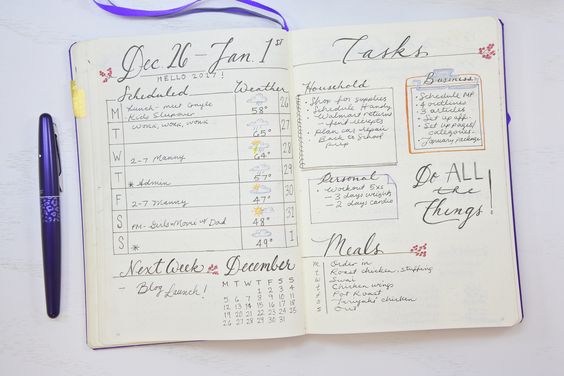 Dec 26 - Jan. 1st
HELLO 2017!
Scheduled
Weather
M
Lunch - meet
Kids Sleepover
58°
26
T
work, work, work
65°
27
W
2-7 Manny
64°
28
T
* Admin
57°
29
F
2-7 Manny
47°
30
S
PM - Girls - Movie w/ Dad
48°
31
S
*
49°
1
Next Week
- Blog Launch!
December
M T W T F S S
1 2 3 4
5 6 7 8 9 10 11
12 13 14 15 16 17 18
19 20 21 22 23 24 25
26 27 28 29 30 31
Tasks
Household
• Shop for supplies
• Schedule Handy
• Walmart returns
- receipts
• Plan car repair
• Back to School
prep
Business
• Schedule
• 4 outlines
• 3 articles
• Set up app.
• Set up pages/
categories
• January package
Personal
• Workout 5xs
- 3 days weights
- 2 days cardio
Do ALL
the
things!
Meals
M Order in
T Roast chicken, stuffing
W
T Chicken wings
F Pot Roast
S Teriyaki chicken
S Out